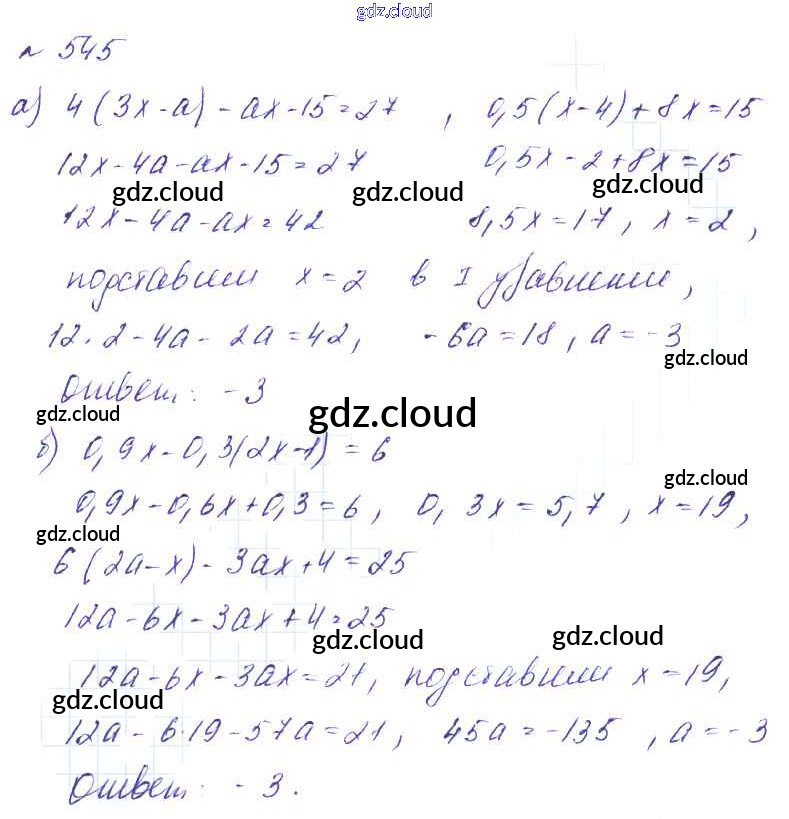 gdz.cloud
№ 545
а) 4(3x-a)-ax-15=27 , 0,5(x-4)+8x=15
12x-4a-ax-15=27 0,5x-2+8x=15
gdz.cloud gdz.cloud gdz.cloud
12x-4a-ax=42 8,5x=17, x=2,
подставим x=2 в I уравнение,
12·2-4a-2a=42, -6a=18, a=-3
gdz.cloud
Ответ: -3
gdz.cloud gdz.cloud
б) 0,9x-0,3(2x-1)=6
gdz.cloud
0,9x-0,6x+0,3=6, 0,3x=5,7, x=19,
gdz.cloud
6(2a-x)-3ax+4=25
12a-6x-3ax+4=25
gdz.cloud gdz.cloud
12a-6x-3ax=21, подставим x=19,
gdz.cloud
12a-6·19-57a=21, 45a=-135, a=-3
Ответ: -3.
gdz.cloud